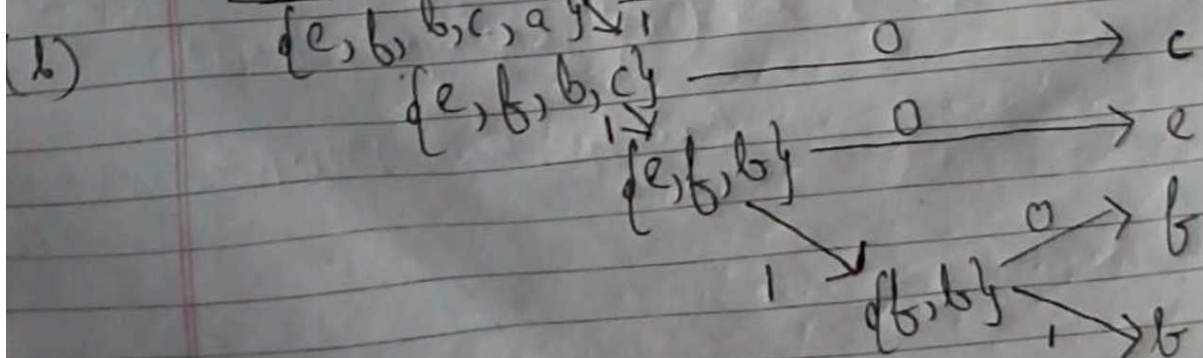 (b) {e, f, b, c, a} 1
{e, f, b, c} 0 c
1 {e, f, b} 0 e
1 {f, b} 0 f
1 b